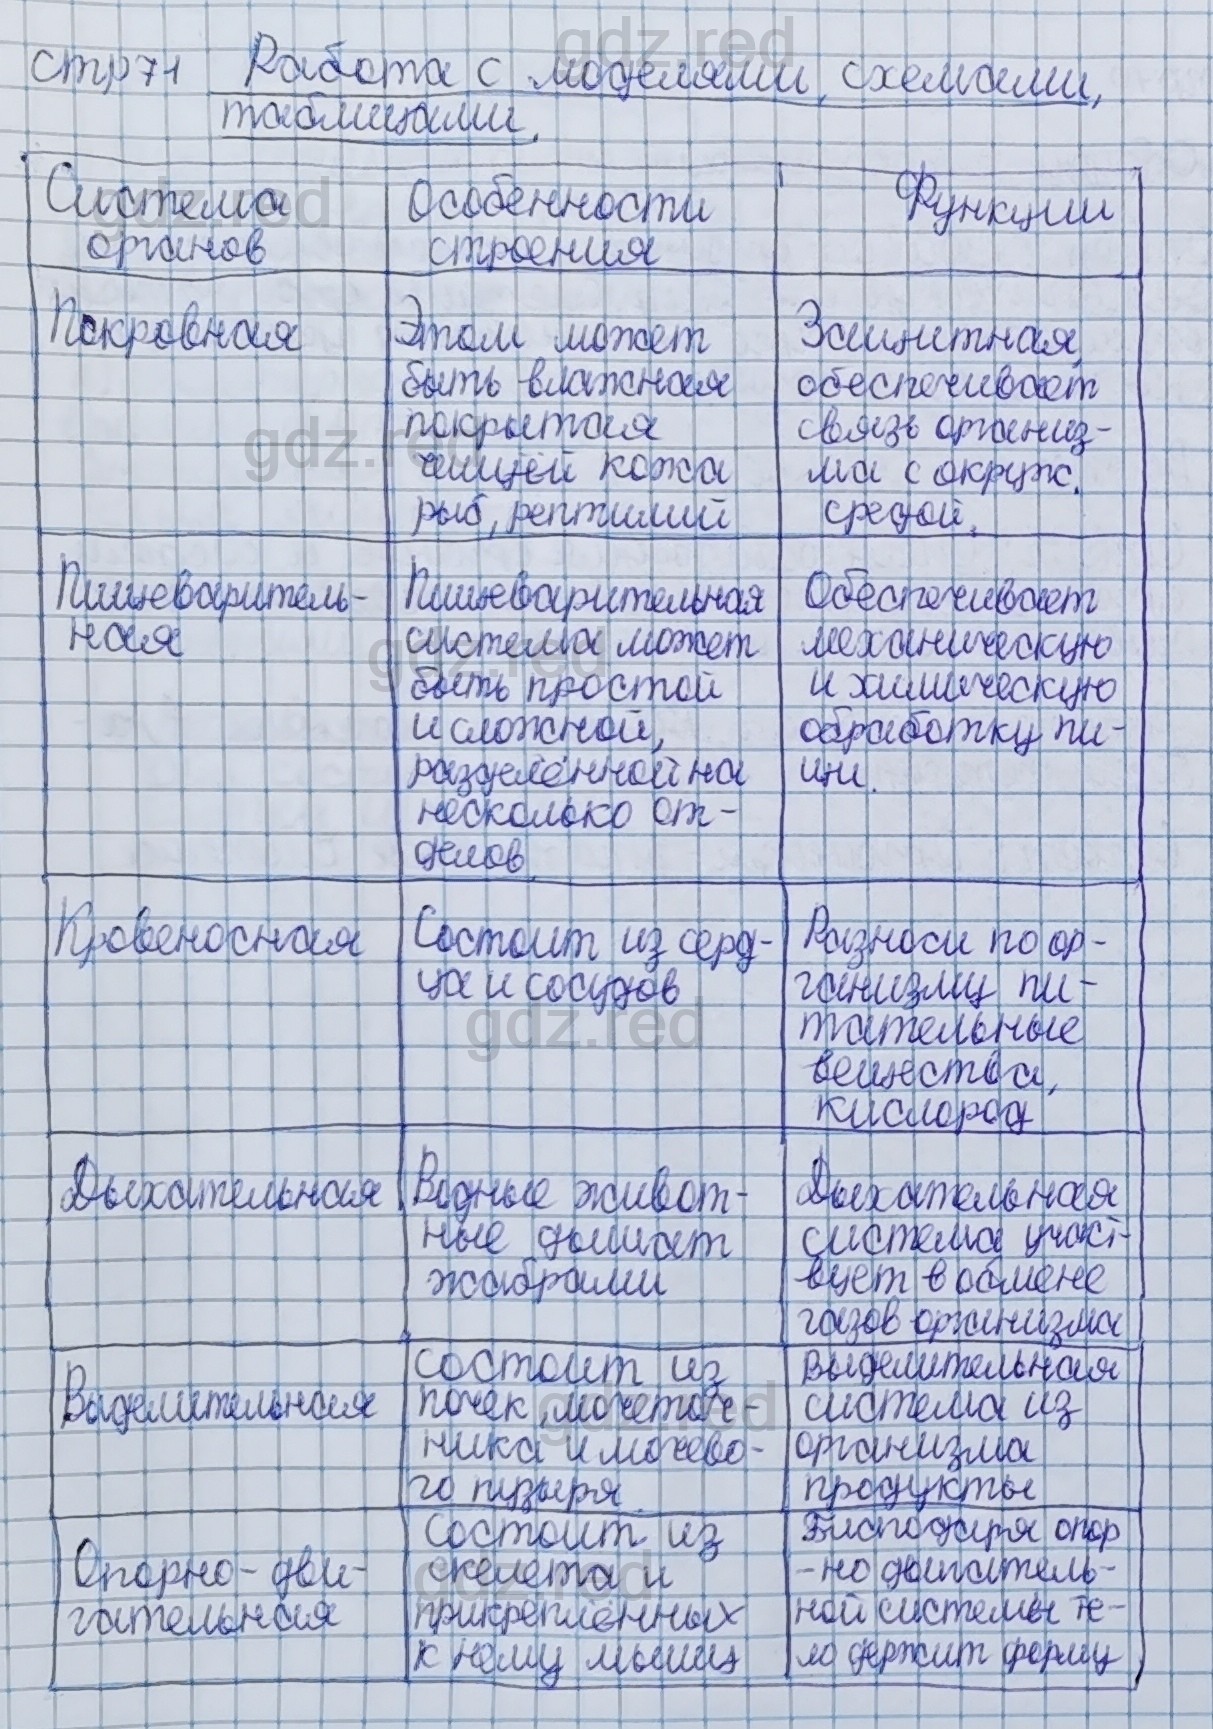 стр71 Работа с моделями, схемами,
таблицами.
Система
органов
Особенности
строения
Функции
Покровная
Этом может
быть влажная
покрытая
чищей кожа
рыб, рептилий
Защитная,
обеспечивает
связь организ-
ма с окруж.
средой.
Пищеваритель-
ная
Пищеварительная
система может
быть простой
и сложной,
разделённой на
несколько от-
делов
Обеспечивает
механическую
и химическую
обработку пи-
щи.
Кровеносная
Состоит из серд-
ца и сосудов
Разноси по ор-
ганизму пи-
тательные
вещества,
кислород
Дыхательная
Водные живот-
ные дышат
жабрами
Дыхательная
система участ-
вует в обмене
газов организма
Выделительная
состоит из
почек, мочеточ-
ника и мочево-
го пузыря
выделительная
система из
организма
продукты
Опорно-дви-
гательная
состоит из
скелета и
прикреплённых
к нему мышц
опор
-но двигатель-
ной системы те-
ло держит форму
gdz.red
gdz.red
gdz.red
gdz.red
gdz.red
gdz.red
gdz.red